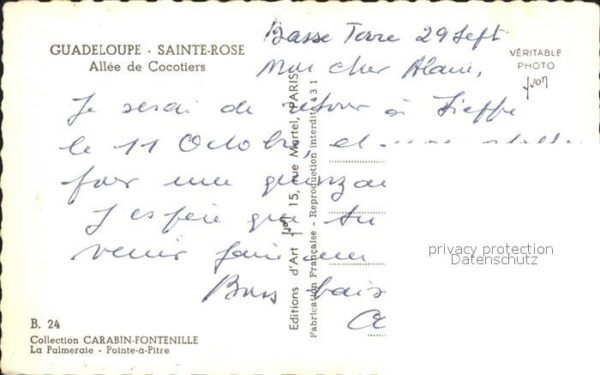 GUADELOUPE - SAINTE-ROSE
Allée de Cocotiers
Basse Terre 29 Sept
Mon cher Alain,
VÉRITABLE
PHOTO
yvon
Je serai de retour à
le 11 Octobre, et
pour une
J'espère que tu
venir faire
Bons bais
privacy protection
Datenschutz
Editions d'Art yvon 15, rue Martel, PARIS
Fabrication Française - Reproduction interdite 431
B. 24
Collection CARABIN-FONTENILLE
La Palmeraie - Pointe-à-Pitre